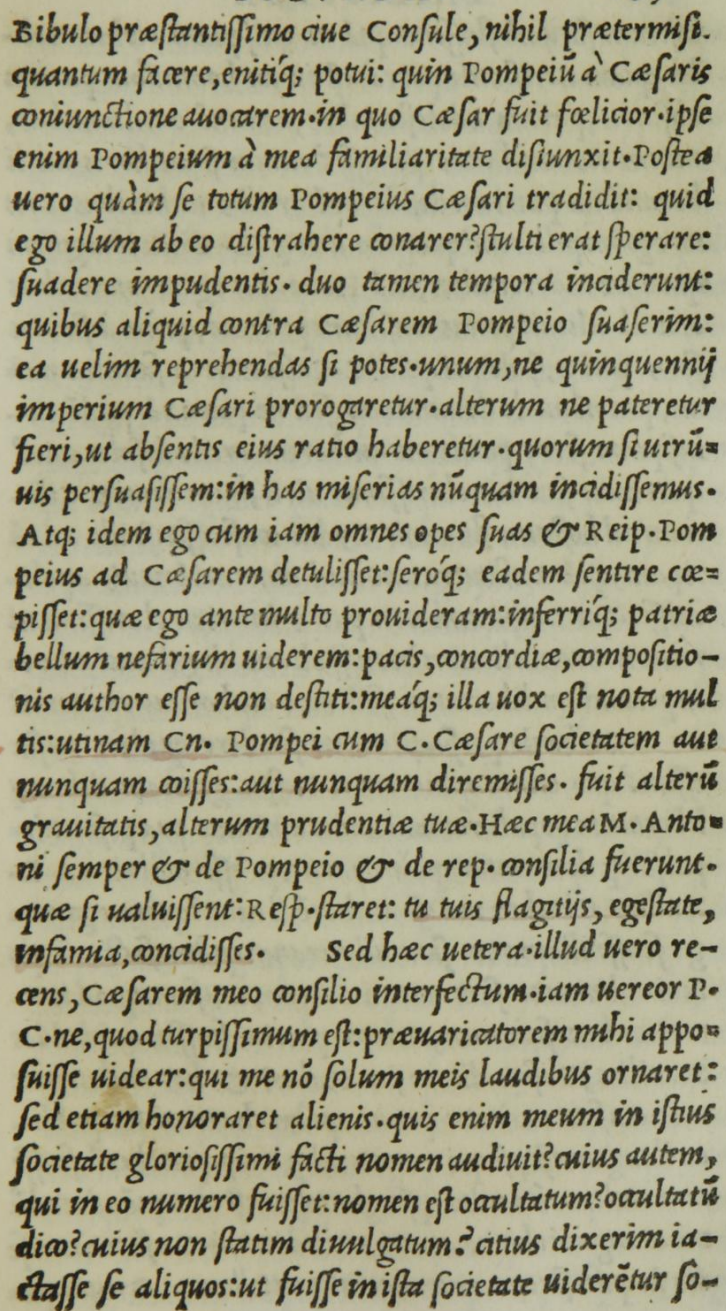 Bibulo præstantissimo ciue Consule, nihil prætermisi.
quantum facere, enitiq́; potui: quin Pompeiū à Cæsaris
coniunctione auocarem. in quo Cæsar fuit fœlicior. ipse
enim Pompeium à mea familiaritate disiunxit. Postea
uero quàm se totum Pompeius Cæsari tradidit: quid
ego illum ab eo distrahere conarer? stulti erat sperare:
suadere impudentis. duo tamen tempora inciderunt:
quibus aliquid contra Cæsarem Pompeio suaserim:
ea uelim reprehendas si potes. unum, ne quinquennij
imperium Cæsari prorogaretur. alterum ne pateretur
fieri, ut absentis eius ratio haberetur. quorum si utrū=
uis persuasissem: in has miserias nūquam incidissemus.
Atq; idem ego cum iam omnes opes suas & Reip. Pom
peius ad Cæsarem detulisset: seroq́; eadem sentire cœ=
pisset: quæ ego ante multo prouideram: inferriq́; patriæ
bellum nefarium uiderem: pacis, concordiæ, compositio-
nis author esse non destiti: meaq́; illa uox est nota mul
tis: utinam Cn. Pompei cum C. Cæsare societatem aut
nunquam coisses: aut nunquam diremisses. fuit alterū
grauitatis, alterum prudentiæ tuæ. Hæc mea M. Anto=
ni semper & de Pompeio & de rep. consilia fuerunt.
quæ si ualuissent: Resp. staret: tu tuis flagitijs, egestate,
infamia, concidisses. Sed hæc uetera. illud uero re-
cens, Cæsarem meo consilio interfectum. iam uereor P.
C. ne, quod turpissimum est: præuaricatorem mihi appo=
suisse uidear: qui me nō solum meis laudibus ornaret:
sed etiam honoraret alienis. quis enim meum in istius
societate gloriosissimi facti nomen audiuit? cuius autem,
qui in eo numero fuisset: nomen est occultatum? occultatū
dico? cuius non statim diuulgatum? citius dixerim ia-
ctasse se aliquos: ut fuisse in ista societate uiderētur so-